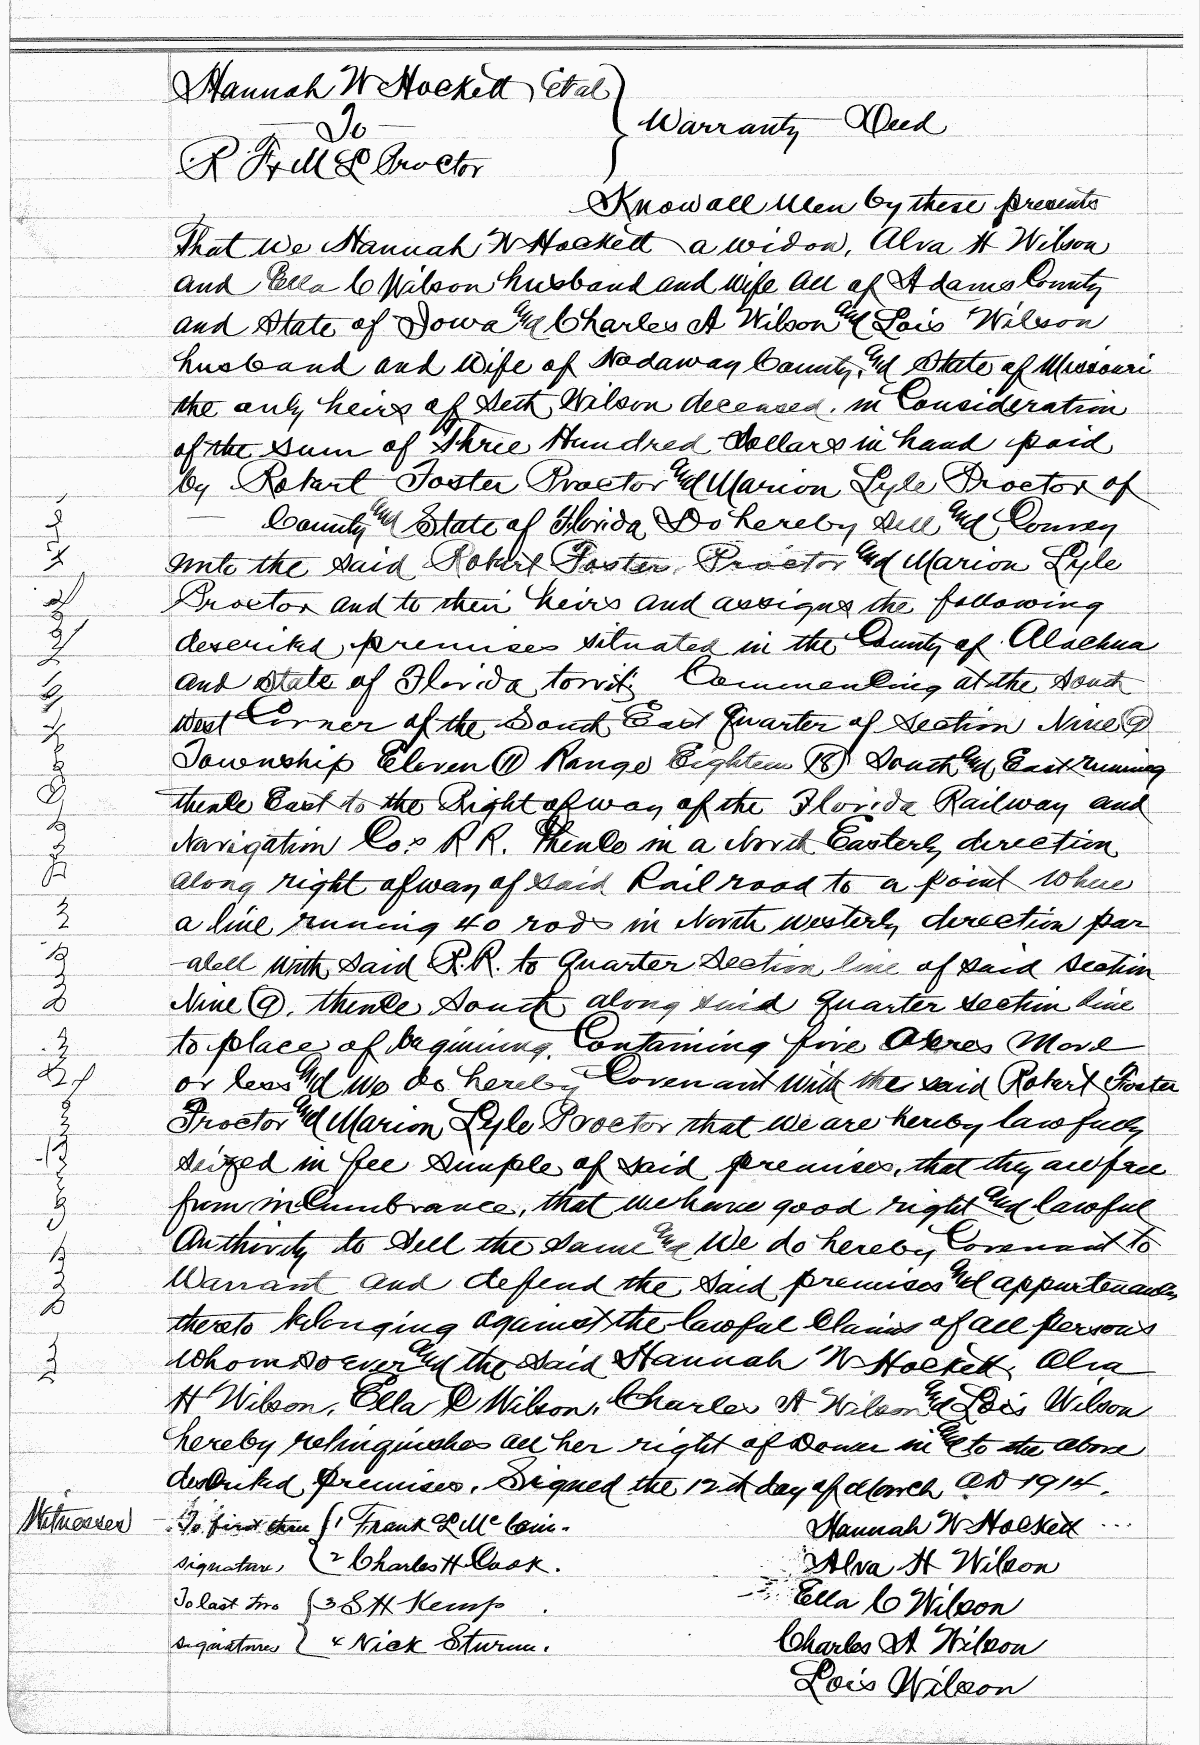 Hannah W Hockett, Et al
To
Warranty Deed
R F & M L Proctor
Know all Men by these presents
That we Hannah W Hockett a widow, Alva H Wilson
and Ella C Wilson husband and wife all of Adams County
and State of Iowa and Charles A Wilson and Lois Wilson
husband and wife of Nodaway County, and State of Missouri
the only heirs of Seth Wilson deceased, in Consideration
of the sum of Three Hundred Dollars in hand paid
by Robert Foster Proctor and Marion Lyle Proctor of
— County and State of Florida Do hereby sell and Convey
unto the said Robert Foster Proctor and Marion Lyle
Proctor and to their heirs and assigns the following
described premises situated in the County of Alachua
and State of Florida towit; Commencing at the South
West Corner of the South East Quarter of Section Nine (9)
Township Eleven (11) Range Eighteen (18) South and East running
thence East to the Right of way of the Florida Railway and
Navigation Co's R R. Thence in a North Easterly direction
along right of way of said Rail road to a point where
a line running 40 rods in North westerly direction par
-alell with said R.R. to quarter section line of said section
Nine (9), thence South along said quarter section line
to place of beginning, Containing five Acres More
or less and we do hereby Covenant with the said Robert Foster
Proctor and Marion Lyle Proctor that we are hereby lawfully
seized in fee simple of said premises, that they are free
from incumbrance, that we have good right and lawful
Authority to sell the same and we do hereby Covenant to
Warrant and defend the said premises and appurtenances
thereto belonging against the lawful claims of all persons
whomsoever and the said Hannah W Hockett, Alva
H Wilson, Ella C Wilson, Charles A Wilson and Lois Wilson
hereby relinquishes all her right of Dower in and to the above
described premises. Signed the 12th day of March AD 1914.
Witnesses To first three { 1 Frank L McCain. Hannah W Hockett
signatures { 2 Charles H Cook. Alva H Wilson
To last two { 3 S H Kemp Ella C Wilson
signatures { 4 Nick Sturm. Charles A Wilson
Lois Wilson